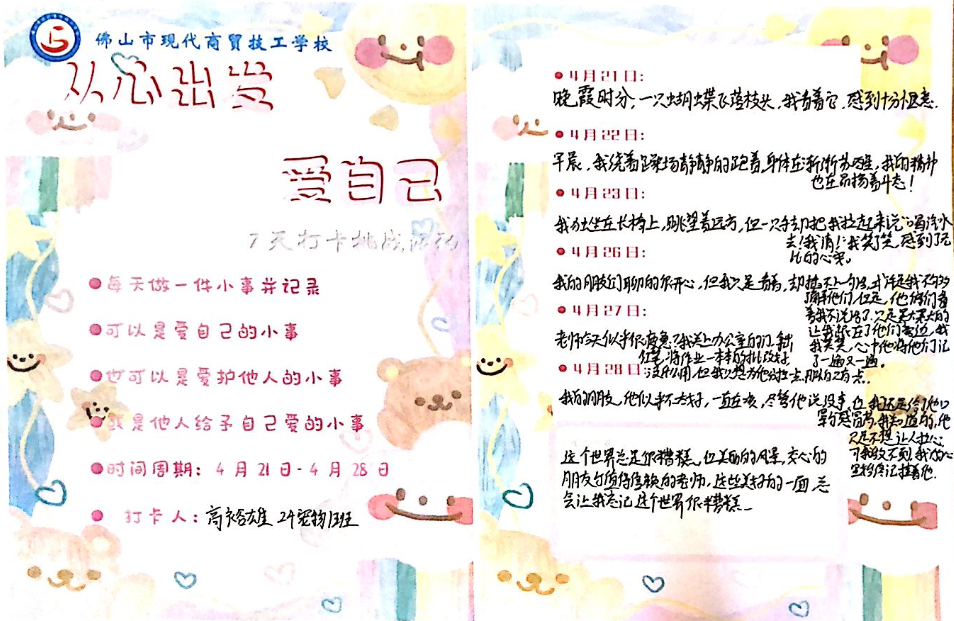 佛山市现代商贸技工学校
从心出发
爱自己
7天打卡挑战活动
每天做一件小事并记录
可以是爱自己的小事
也可以是爱护他人的小事
或是他人给予自己爱的小事
时间周期：4月21日-4月28日
打卡人：高 雄 24宠物1班
4月21日：
晚霞时分，一只蝴蝶飞落枝头，我看着它，感到十分惬意。
4月22日：
早晨，我绕着 场静静的跑着，身体在渐渐苏醒，我的精神
也在昂扬着斗志！
4月23日：
我 坐在长椅上，眺望着远方，但一只手却把我拉起来说“喝汽水
去！我请！”我笑了笑，感到了
的心安。
4月26日：
我的朋友们聊的很开心，但我只是看着，却 不上一句话，或许是我不够
懂他们，但是，他 们看
着我不说话了，只是
让我跟在了他们 边，我
笑笑，心中把 他们记
了一遍又一遍。
4月27日：
老师今天似乎很疲惫，我关上办公室的门，
红笔，将作业一本本的批改好
没 用，但我只想为他分担一点，那怕只有一点。
4月28日：
我的朋友，他似乎不太好，一直在咳，尽管他说没事，也 我还是给他
感冒药，我知道的，他
只是不想让人担心，
可
记挂着他。
这个世界总是很糟糕，但美丽的风景，交心的
朋友与值得 的老师，这些美好的一面，总
会让我忘记这个世界很糟糕。